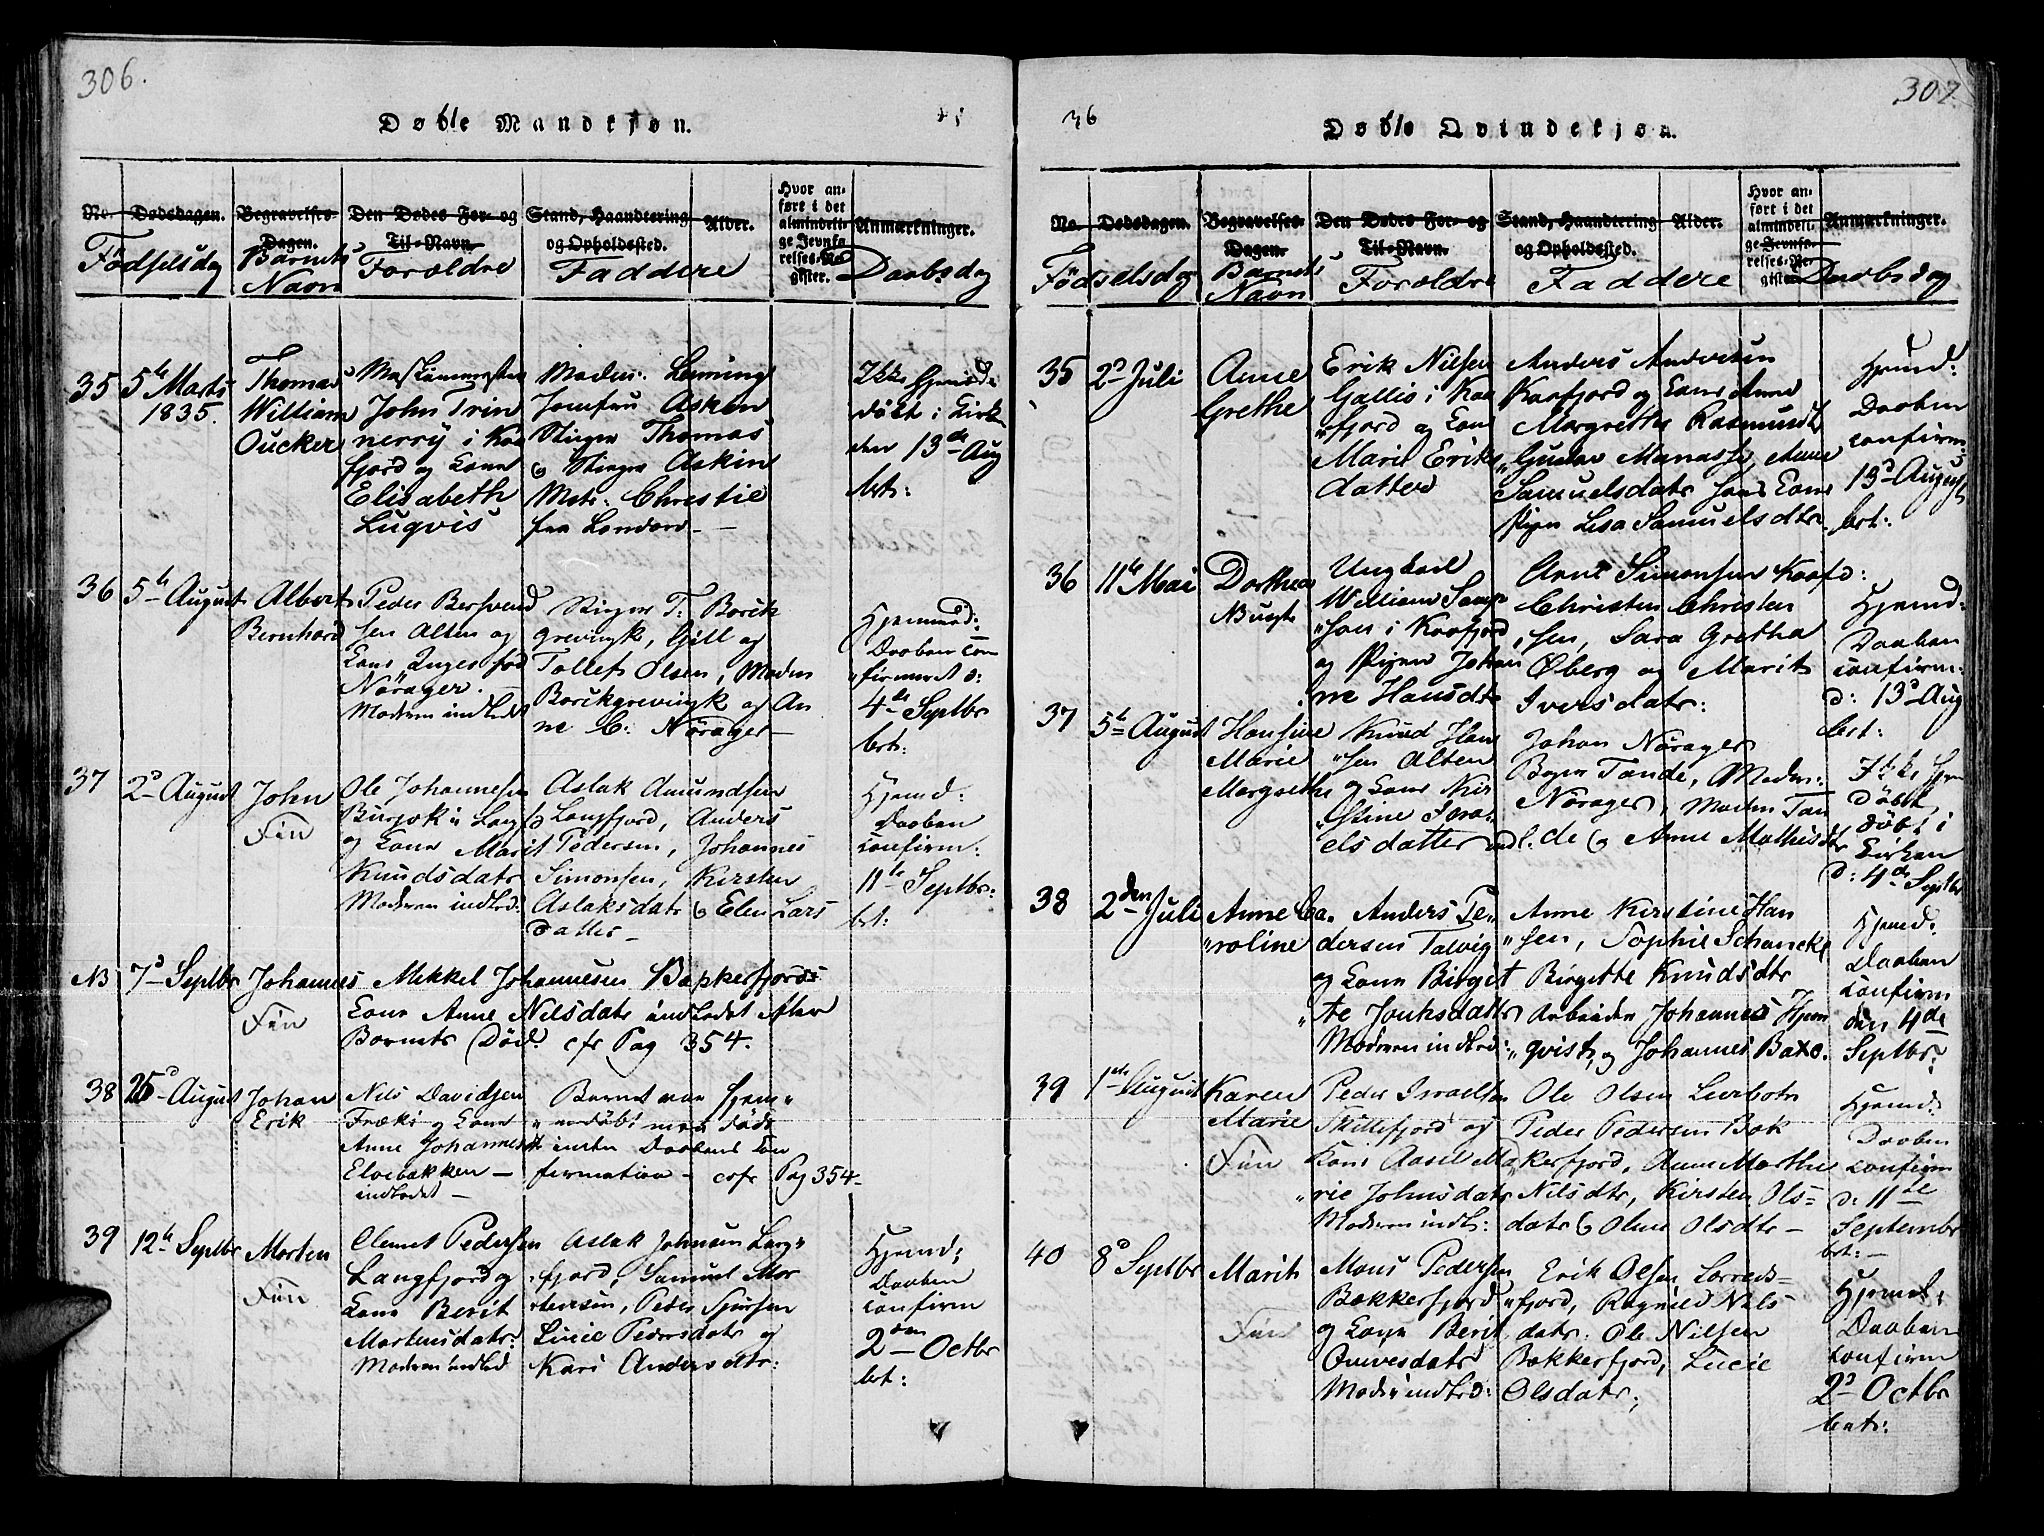 306.
Døde Mandkjøn.
No. Dødsdagen. Begravelses-Dagen. Den Dødes For- og Til-Navn. Stand, Haandtering og Opholdssted. Alder. Hvor anført i det almindelige Jevnførelses-Register. Anmærkninger.
Födselsdag Barnets Navn Foroldre Faddere Daabsdag
35 5te Marts 1835.
Thomas
William
Oucker
John Trin
nerry i Kaa
fjord og Kone
Elisabeth
Luqvis
Jomfru Asken
Stiger Thomas
og Stiger Askin
Mstr. Christie
fra London
Ikke Hjemme
døbt i Kirk
den 13de Aug
brt:
36 5te August
Albert
Bernhard
Peder
sen Alten og
Kone Inger fød
Nörager.
Modren indledt
Stiger T: Borck
grevingk, Gjill og
Tollef Olsen, Madm
Borckgrevingk og An
ne C: Nörager
Hjemmed:
Daaben con
firmeret d:
4de Septbr
brt:
37 2d August
John
Fin
Ole Johannesen
og Kone Marit
Knudsdatr
Modren indled:
Aslak Amundsen
Langfjord, Anders
Pedersen, Johannes
Simonsen, Kirsten
Aslaksdatr og Elen Lars
datter
Hjemd:
Daaben
confirm:
11te Septbr:
brt:
NB 7d Septbr
Johannes
Fin
Mekkel Johannesen Bokkerfjords
Kone Anne Nilsdatr indledt efter
Barnets Död. cfr Pag 354.
38 25d August
Johan
Erik
Nils Davidsen
og Kone
Anne Johannesdtr
Elvebakken
indledet
Barnet var hjem
medøbt men døde
inden Daabens Con
firmation cfr Pag 354
39 12te Septbr
Morten
Fin
Clemet Pedersen
Langfjord og
Kone Berit
Mortensdatr:
Modren indled
Aslak Johnsen Lang
fjord, Samuel Mor
tensen, Peder Sjursen
Lucie Pedersdatr og
Kari Andersdtr:
Hjemd:
Daaben
confirm
2den Octbr
brt:
36
307
Døde Qvindekjøn.
No. Dødsdagen. Begravelses-Dagen. Den Dødes For- og Til-Navn. Stand, Haandtering og Opholdssted. Alder. Hvor anført i det almindelige Jevnførelses-Register. Anmærkninger.
Födselsdag Barnets Navn Foroldre Faddere Daabsdag
35 2d Juli
Anne
Grethe
Erik Nilsen
Gallis i Kaa
fjord og Kone
Marie Eriks
datter
Anders Andersen
Kaafjord og Kone Anne
Margrethe Rasmusdtr
Gustav Manasse, Anne
Samuelsdatr hans Kone
Pigen Lisa Samuelsdtr.
Hjemd:
Daaben
confirm:
13d August
brt:
36 11te Mai
Dorthea
Ungkarl
William Samp
son i Kaafjord
og Pigen Johan
ne Hansdtr
Arne Simonsen Kaafd:
Christen Christen
sen, Sara Gretha
Øberg og Marit
Iversdatr:
Hjemd:
Daaben
confirm:
d: 13d Aug
brt:
37 5te August
Hansine
Marie
Margrethe
Knud Han
sen Alten
og Kone Kir
stine Isra
elsdatter
Johan Nörager
Boyer Tande, Madm:
Nörager, Madm Tan
de og Anne Mathisdtr
Ikke Hjem
døbt
døbt i
Kirken
d: 4de Septbr
38 2den Juli
Anne Ca
roline
Anders Pe
dersen Talvig
og Kone Birget
te Jonksdattr
Modren indled:
Anne Kirstine Han
sen, Sophie Schancke
Birgette Knudsdtr
Arbeider Johannes Hjem
qvist, og Johannes Baxo.
Hjemd:
Daaben
confirm
den 4de
Septbr:
39 1ste August
Karen
Marie
Fin
Peder Israelsen
Skillefjord og
Kone Aasel Ma
rie Johnsdatr
Modren indl:
Ole Olsen Lerbotn
Peder Pedersen Bok
kerfjord, Anne Marthe
Nilsdtr, Kirsten Ols
datr og Oline Olsdtr
Hjemd:
Daaben
confirm
d: 11te
Septembr
brt:
40 8d Septbr
Marit
Fin
Mons Pedersen
Bokkerfjord
og Kone Berit
Modr indled:
Erik Olsen
fjord, Ragnild Nils
datr. Ole Nilsen
Bokkerfjord, Lucie
Olsdatr;
Hjemd:
Daaben
confirm
2d Octbr